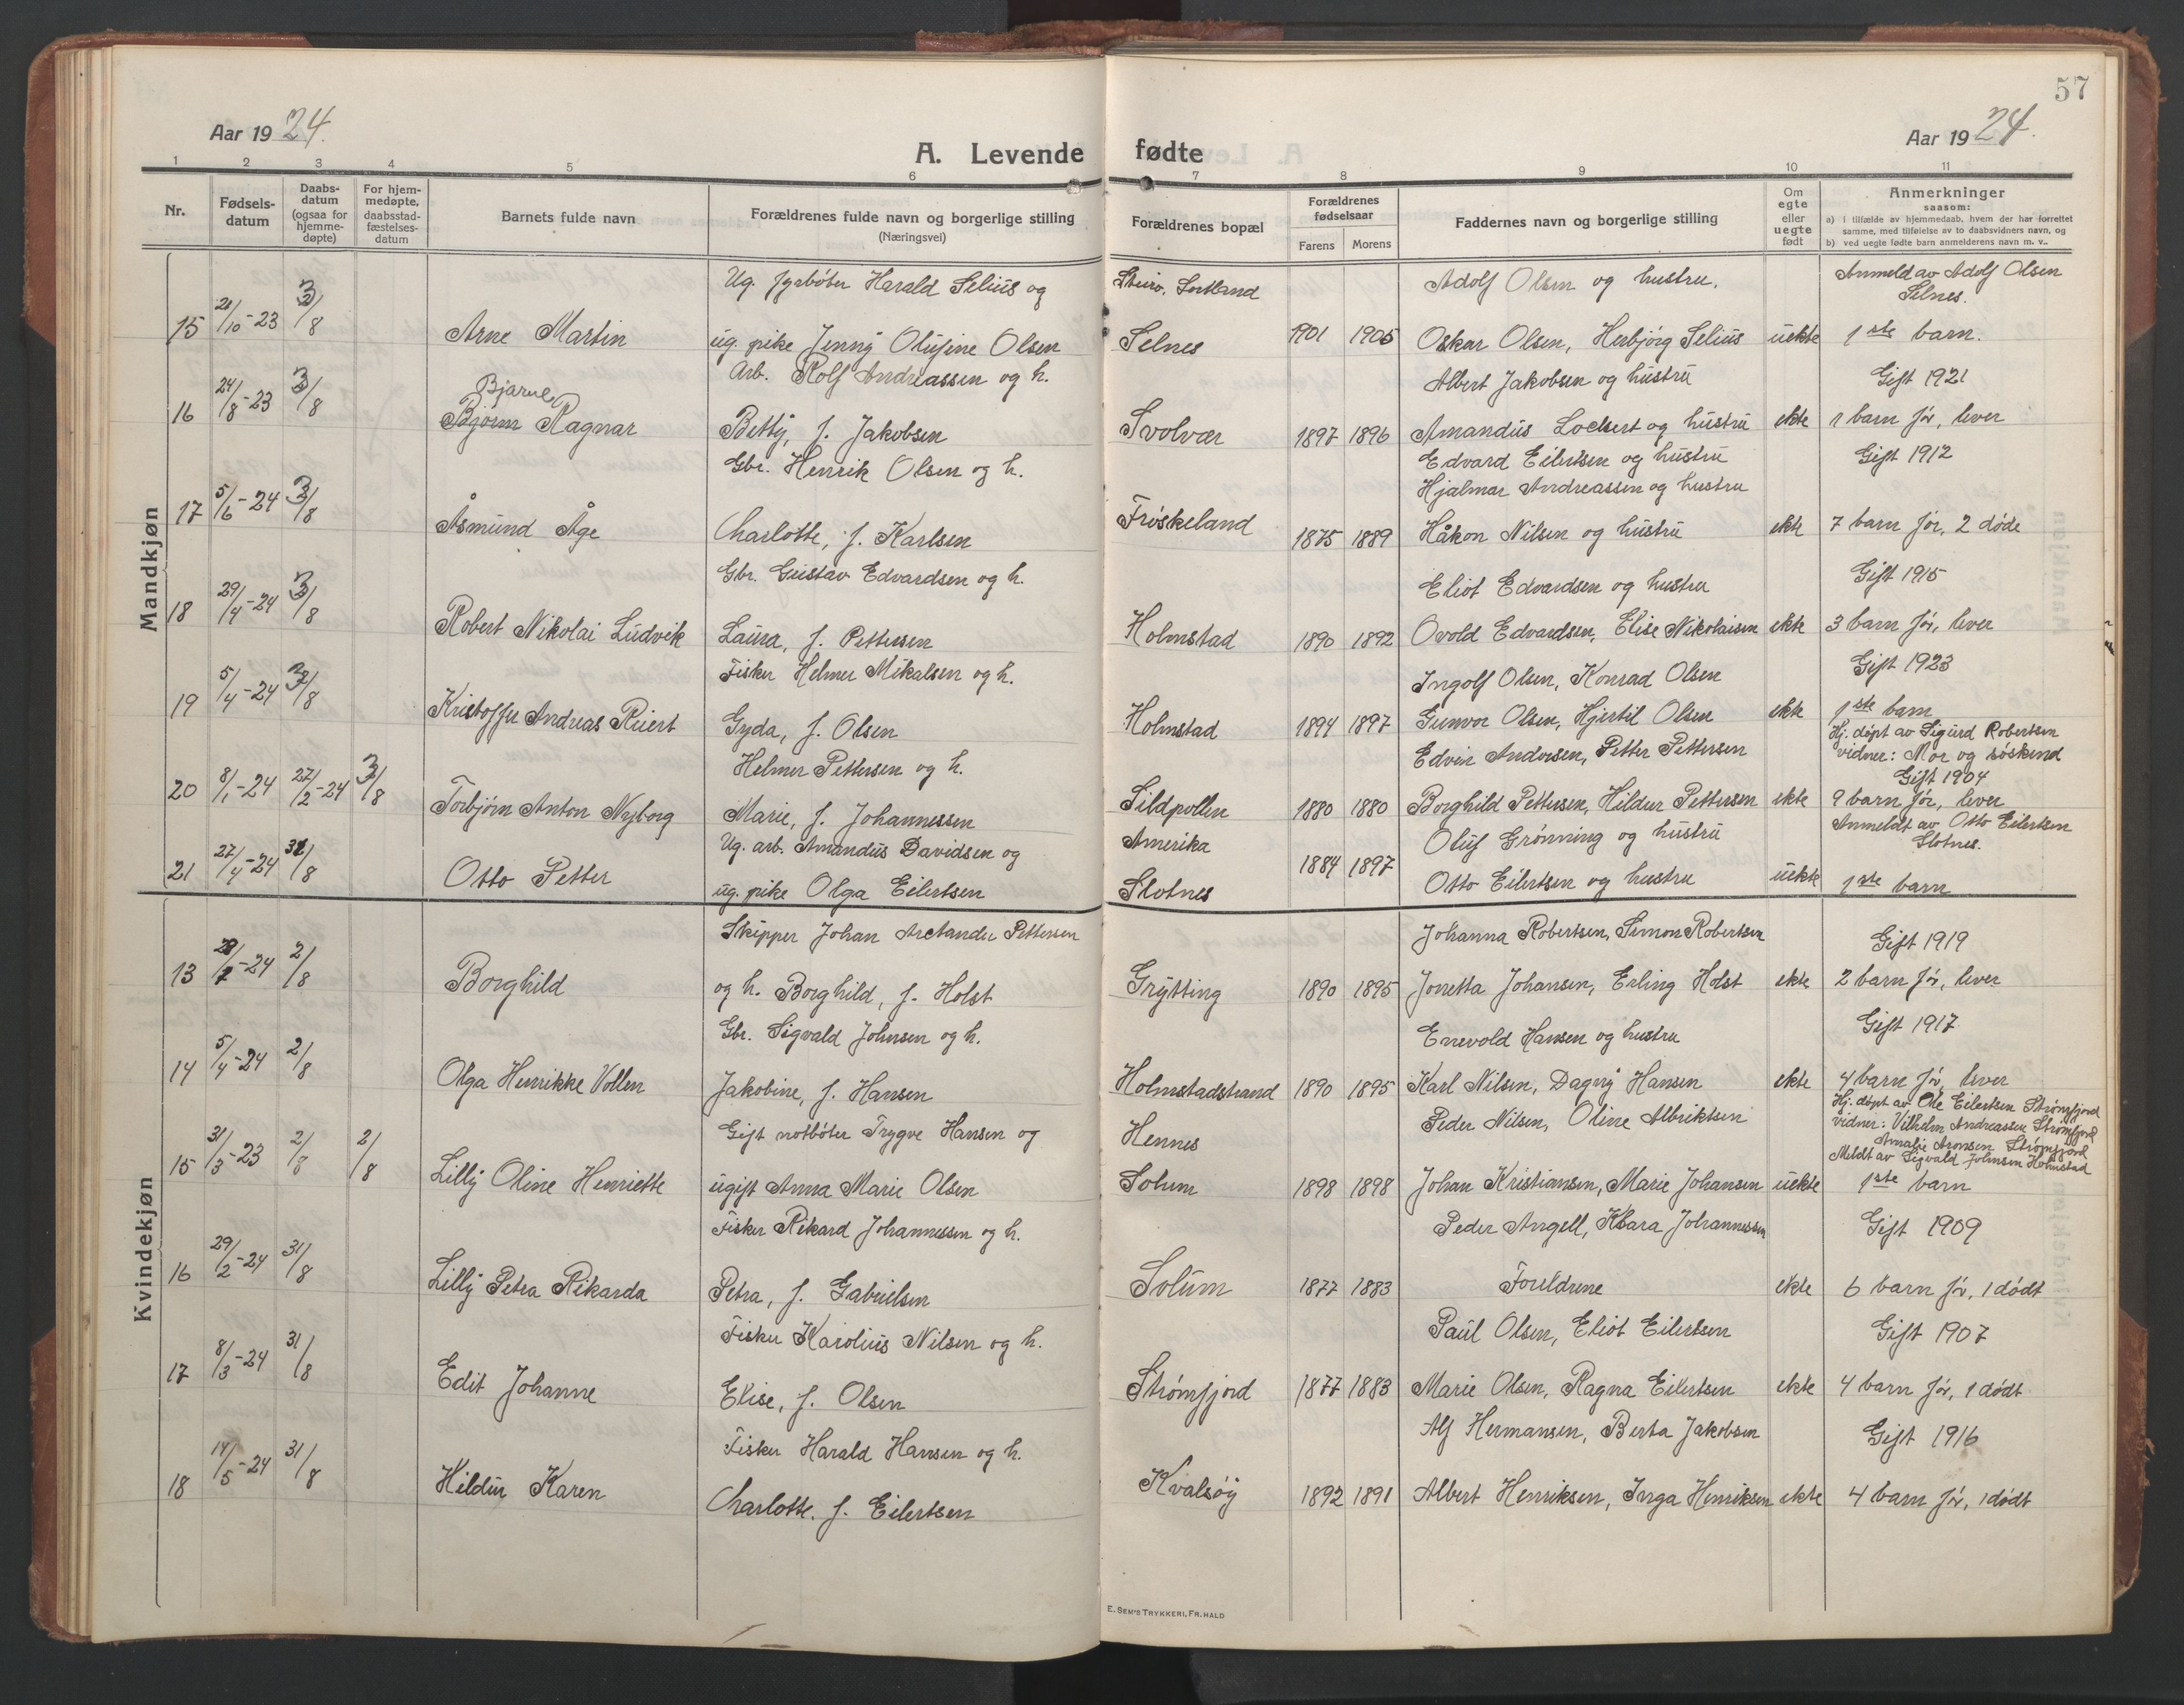 57
Aar 1924.
A. Levende fødte
Aar 1924.
1 2 3 4 5 6 7 8 9 10 11
Nr.
Fødsels-datum
Daabs-datum (ogsaa for hjemme-døpte)
For hjem-medøpte, daabsstad-fæstelses-datum
Barnets fulde navn
Forældrenes fulde navn og borgerlige stilling
(Næringsvei)
Forældrenes bopæl
Forældrenes fødselsaar
Farens Morens
Faddernes navn og borgerlige stilling
Om egte eller uegte født
Anmerkninger
saasom:
a) i tilfælde av hjemmedaab, hvem der har forrettet samme, med tilføielse av to daabsvidners navn, og
b) ved uegte fødte barn anmelderens navn m. v..
Mandkjøn
Ug. fyrbøter Harald Selius og Sortland Adolf Olsen og hustru. Anmeld av Adolf Olsen
Selnes.
15 21/10-23 3/8 Arne Martin ug. pike Jenny Olufine Olsen Selnes 1901 1905 Oskar Olsen, Herbjørg Selius uekte 1ste barn.
Arb. Rolf Andreassen og h. Albert Jakobsen og hustru Gift 1921
Bjarne
16 24/8-23 3/8 Bjørn Ragnar Betty, f. Jakobsen Svolvær 1897 1896 Amandus Lockert og hustru ekte 1 barn før, lever
Gbr. Henrik Olsen og h. Edvard Eilertsen og hustru Gift 1912
Hjalmar Andreassen og hustru
17 5/6-24 3/8 Åsmund Åge Charlotte, f. Karlsen Frøskeland 1875 1889 Håkon Nilsen og hustru ekte 7 barn før, 2 døde
Gbr. Gustav Edvardsen og h. Eliot Edvardsen og hustru Gift 1915
18 29/4-24 3/8 Robert Nikolai Ludvik Laura, f. Pettersen Holmstad 1890 1892 Ovold Edvardsen, Elise Nikolaisen ekte 3 barn før, lever
Fisker Helmer Mikalsen og h. Ingolf Olsen, Konrad Olsen Gift 1923
19 5/4-24 3/8 Kristoffer Andreas Riert Gyda, f. Olsen Holmstad 1894 1897 Gunvor Olsen, Hjertil Olsen ekte 1ste barn
Helmer Pettersen og h. Edvin Andersen, Petter Pettersen Hj. døpt av Sigurd Robertsen
vidner: Mor og søskend
Gift 1904
20 8/1-24 27/2-24 3/8 Torbjørn Anton Nyborg Marie, f. Johannessen Sildpollen 1880 1880 Borghild Pettersen, Hildur Pettersen ekte 9 barn før, lever
Ug. arb. Amandus Davidsen og Amerika Oluf Grønning og hustru Anmeldt av Otto Eilertsen
Slotnes.
21 27/4-24 31/8 Otto Petter ug. pike Olga Eilertsen Slotnes 1884 1897 Otto Eilertsen og hustru uekte 1ste barn
Kvindekjøn
Skipper Johan Arctander Pettersen Johanna Robertsen, Simon Robertsen Gift 1919
13 28/2-24 2/8 Borghild og h. Borghild, f. Holst Grytting 1890 1895 Jonetta Johansen, Erling Holst ekte 2 barn før, lever
Gbr. Sigvald Johnsen og h. Enevold Hansen og hustru Gift 1917
14 5/4-24 2/8 Olga Henrikke Vollen Jakobine, f. Hansen Holmstadstrand 1890 1895 Karl Nilsen, Dagny Hansen ekte 4 barn før, lever
Gift notbøter Trygve Hansen og Hennes Peder Nilsen, Oline Albriktsen Hj. døpt av Ole Eilertsen Strømfjord
vidner: Vilhelm Andreassen Strømfjord
Amalie Aronsen Strømfjord
Meldt av Sigvald Johnsen Holmstad
15 31/3-23 2/8 2/8 Lilly Oline Henriette ugift Anna Marie Olsen Solum 1898 1898 Johan Kristiansen, Marie Johansen uekte 1ste barn
Fisker Rikard Johannessen og h. Peder Angell, Klara Johannessen Gift 1909
16 29/2-24 31/8 Lilly Petra Rikarda Petra, f. Gabrielsen Solum 1877 1883 Foreldrene ekte 6 barn før, 1 dødt
Fisker Karolius Nilsen og h. Paul Olsen, Eliot Eilertsen Gift 1907
17 8/3-24 31/8 Edit Johanne Elise, f. Olsen Strømfjord 1877 1883 Marie Olsen, Ragna Eilertsen ekte 4 barn før, 1 dødt
Fisker Harald Hansen og h. Alf Hermansen, Berta Jakobsen Gift 1916
18 14/5-24 31/8 Hildur Karen Charlotte. f. Eilertsen Kvalsøy 1892 1891 Albert Henriksen, Inga Henriksen ekte 4 barn før, 1 dødt
E. SEM'S TRYKKERI, FR. HALD